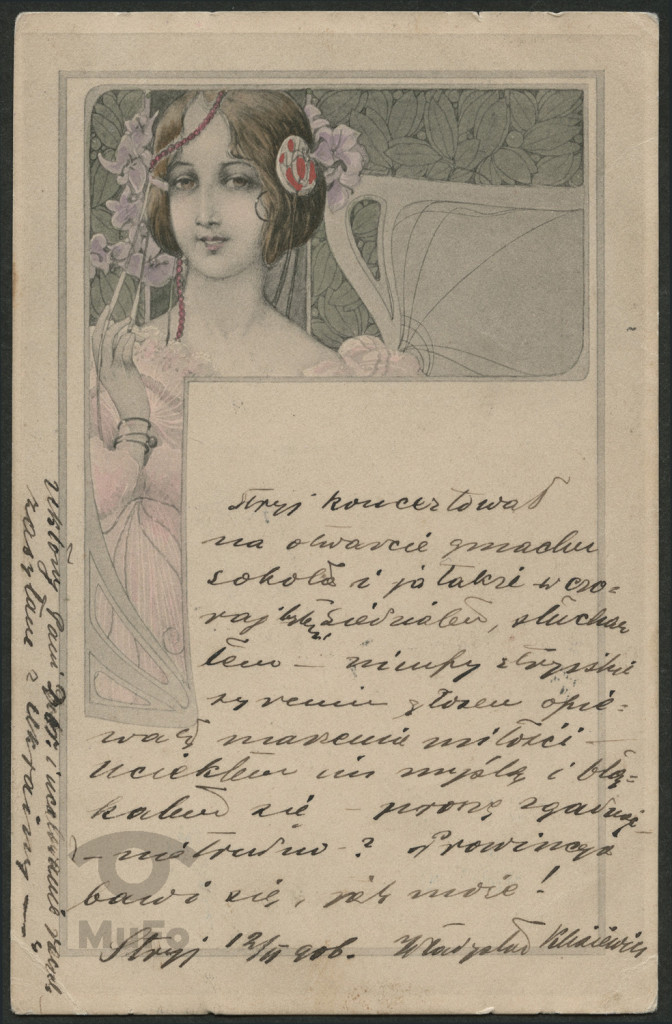 Stryj koncertował
na otwarcie gmachu
sokoła i ja także wczo-
raj siedziałem, słucha
łem – nimfy stryjskie
syrenim głosem opie-
wały marzenia miłości –
Uciekłem im myślą i błą-
kałem się – proszę zgadnąć
– nie trudno – ? Prowincya
bawi się, jak może!
Stryj 12/II 906. Władysław
Ukłony Pani i ucałowanie rączek
zasyłam z Ukrainy –
MuFo